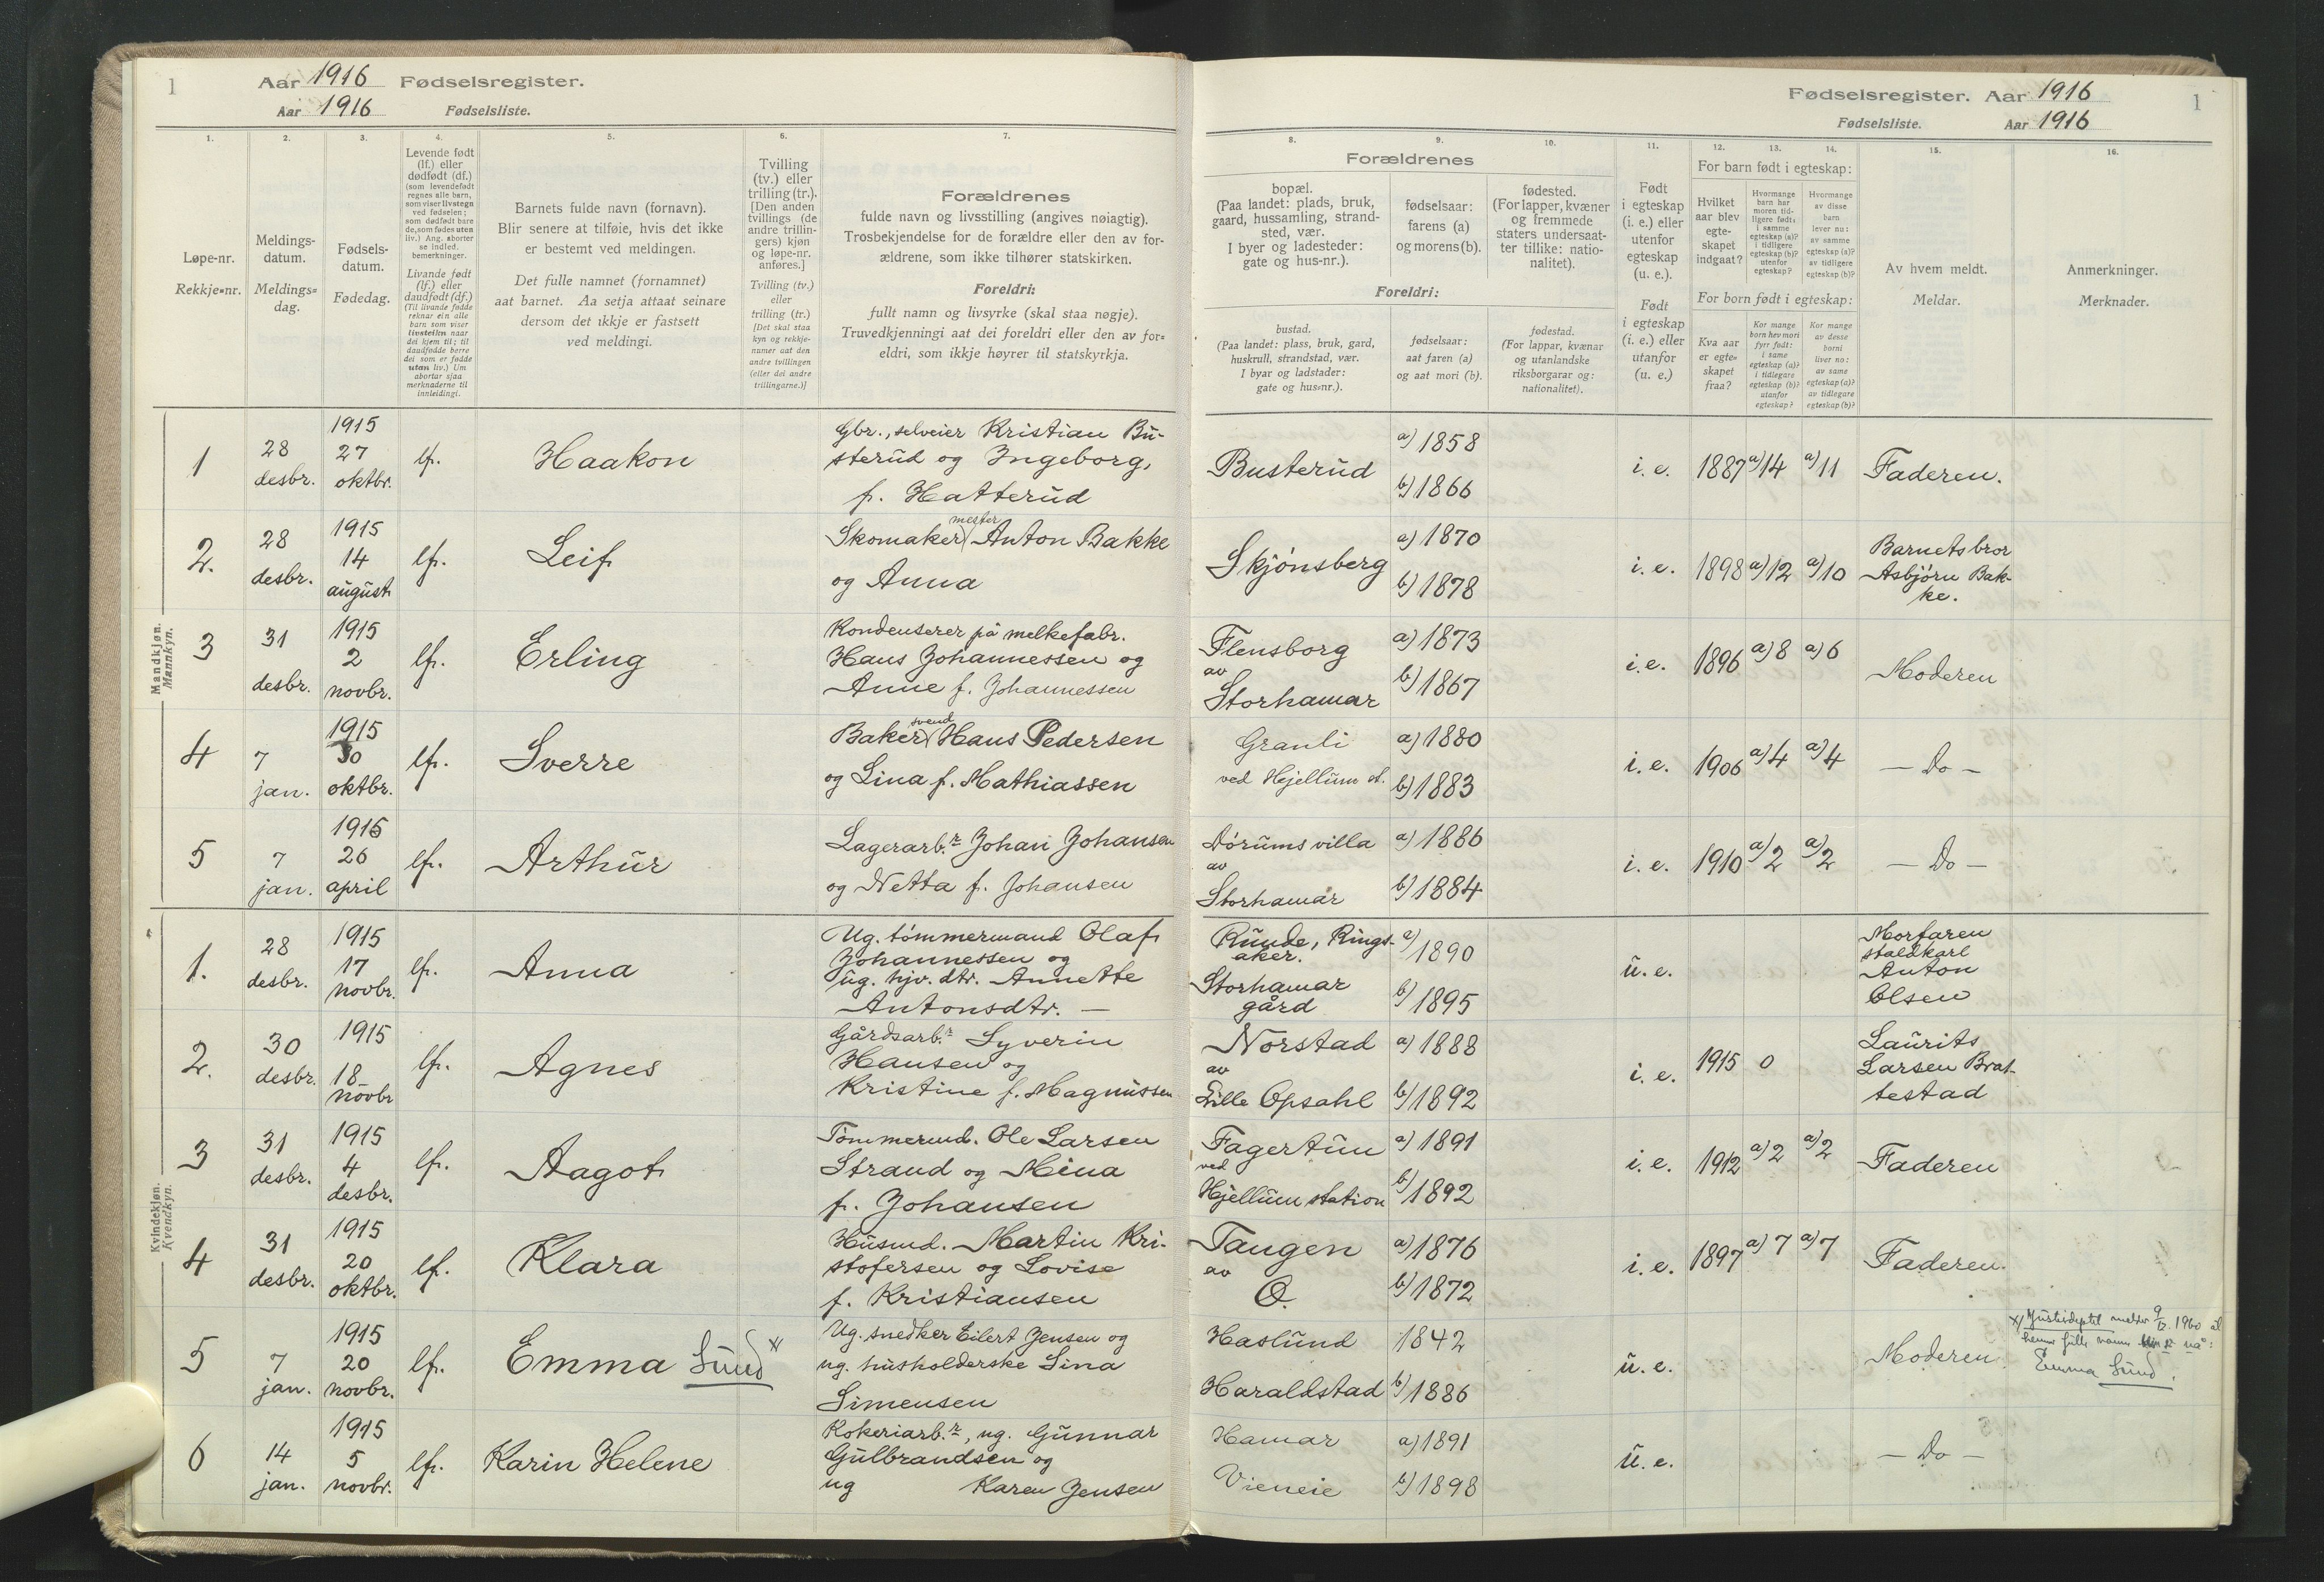 1
Aar 1916 Fødselsregister.
Aar 1916 Fødselsliste.
1.
2.
3.
4.
5.
6.
7.
Løpe-nr.
Rekkje-nr.
Meldings-
datum.
Meldings-
dag.
Fødsels-
datum.
Fødedag.
Levende født
(lf.) eller
dødfødt (df.)
(som levendefødt
regnes alle barn,
som viser livstegn
ved fødselen;
som dødfødt bare
de, som fødes uten
liv.) Ang. aborter
se indled.
bemerkninger.
Livande født
(lf.) eller
daudfødt (df.)
(Til livande fødde
reknar ein alle
barn som viser
livsteikn naar
dei kjem til; til
daudfødde berre
dei som er fødde
utan liv.) Um
abortar sjaa
merknaderne til
innleidingi.
Barnets fulde navn (fornavn).
Blir senere at tilføie, hvis det ikke
er bestemt ved meldingen.
Det fulle namnet (fornamnet)
aat barnet. Aa setja attaat seinare
dersom det ikkje er fastsett
ved meldingi.
Tvilling
(tv.) eller
trilling (tr.).
[Den anden
tvillings (de
andre trillin-
gers) kjøn
og løpe-nr.
anføres.]
Tvilling (tv.)
eller
trilling (tr.)
[Det skal staa
kyn og rekkje-
numer aat den
andre tvillingen
(eller dei andre
trillingarne.)]
Forældrenes
fulde navn og livsstilling (angives nøiagtig).
Trosbekjendelse for de forældre eller den av for-
ældrene, som ikke tilhører statskirken.
Foreldri:
fullt namn og livsyrke (skal staa nøgje).
Truvedkjenningi aat dei foreldri eller den av for-
eldri, som ikkje høyrer til statskyrkja.
Fødselsregister. Aar 1916
1
Fødselsliste. Aar 1916
8.
9.
10.
11.
12.
13.
14.
15.
16.
Forældrenes
bopæl.
(Paa landet: plads, bruk,
gaard, hussamling, strand-
sted, vær.
I byer og ladesteder:
gate og hus-nr.).
fødselsaar:
farens (a)
og morens (b).
fødested.
(For lapper, kvæner
og fremmede
staters undersaat-
ter tillike: natio-
nalitet).
Foreldri:
bustad.
(Paa landet: plass, bruk, gard,
huskrull, strandstad, vær.
I byar og ladstader:
gate og hus-nr.).
fødselsaar:
aat faren (a)
og aat mori (b).
fødestad.
(For lappar, kvænar
og utanlandske
riksborgarar og:
nationalitet).
Født
i egteskap
(i. e.) eller
utenfor
egteskap
(u. e.).
Født
i egteskap
(i. e.) eller
utanfor
(u. e.)
For barn født i egteskap:
Hvilket
aar blev
egte-
skapet
indgaat?
Hvormange
barn har
moren tid-
ligere født:
i samme
egteskap (a)?
i tidligere
egteskap (b)?
utenfor
egteskap?
Hvormange
av disse
barn
lever nu:
av samme
egteskap (a)?
av tidligere
egteskap (b)?
For born født i egteskap:
Kva aar
er egte-
skapet
fraa?
Kor mange
born hev mori
fyrr født:
i same
egteskap (a)?
i tidlegare
egteskap (b)?
utanfor
egteskap?
Kor mange
av desse
borni
liver no:
av same
egteskap (a)?
av tidlegare
egteskap (b)?
Av hvem meldt.
Meldar.
Anmerkninger.
Merknader.
Mandkjøn.
Mannkyn.
1
28
desbr.
1915
27
oktbr.
lf.
Haakon
Gbr., selveier Kristian Bu-
sterud og Ingeborg,
f. Hatterud
Busterud
a) 1858
b) 1866
i. e.
1887
a) 14
a) 11
Faderen.
2.
28
desbr.
1915
14
august
lf.
Leif
mester
Skomaker Anton Bakke
og Anna
Skjónsberg
a) 1870
b) 1878
i. e.
1898
a) 12
a) 10
Barnets bror
Asbjórn Bak-
ke.
3
31
desbr.
1915
2
novbr.
lf.
Erling
Kondenserer på melkefabr.
Hans Johannessen og
Anne f. Johannessen
Flensborg
av
Storhamar
a) 1873
b) 1867
i. e.
1896
a) 8
a) 6
Moderen
4
7
jan.
1915
30
oktbr.
lf.
Sverre
svend
Baker Hans Pedersen
og Lina f. Mathiassen
Granli
ved Hjellum st.
a) 1880
b) 1883
i. e.
1906
a) 4
a) 4
— Do —
5
7
jan.
1915
26
april
lf.
Arthur
Lagerarb.r Johan Johansen
og Netta f. Johansen
Dórums villa
av
Storhamar
a) 1886
b) 1884
i. e.
1910
a) 2
a) 2
— Do —
Kvindekjøn.
Kvendkyn.
1.
28
desbr.
1915
17
novbr.
lf.
Anna
Ug. tómmermand Olaf
Johannessen og
ug. hjv. dtr. Annette
Antonsdtr. —
Runde, Rings-
aker.
Storhamar
gård
a) 1890
b) 1895
u. e.
Morfaren
staldkarl
Anton
Olsen
2.
30
desbr.
1915
18
novbr
lf.
Agnes
Gårdsarb.r Syverin
Hansen og
Kristine f. Magnussen
Norstad
av
Lille Opsahl
a) 1888
b) 1892
i. e.
1915
0
Laurits
Larsen Brat-
testad
3
31
desbr.
1915
4
desbr.
lf.
Aagot
Tómmermd. Ole Larsen
Strand og Mina
f. Johansen
Fagertun
ved
Hjellum station
a) 1891
b) 1892
i. e.
1912
a) 2
a) 2
Faderen
4
31
desbr.
1915
20
oktbr.
lf.
Klara
Husmd. Martin Kri-
stofersen og Lovise
f. Kristiansen
Tangen
av
O.
a) 1876
b) 1872
i. e.
1897
a) 7
a) 7
Faderen.
5
7
jan.
1915
20
novbr.
lf.
Emma Lund x/
Ug. snedker Eilert Jensen og
ug. husholderske Lina
Simensen
Haslund
Haraldstad
1842
b) 1886
u. e.
Moderen.
x/ Justisdeptet melder 9/12 1960 at
hennes fulle navn er nå:
Emma Lund.
6
14
jan.
1915
5
novbr.
lf.
Karin Helene
Kokeriarb.r, ug. Gunnar
Gulbrandsen og
ug Karen Jensen
Hamar
Vieneie
a) 1891
b) 1898
u. e.
— Do —